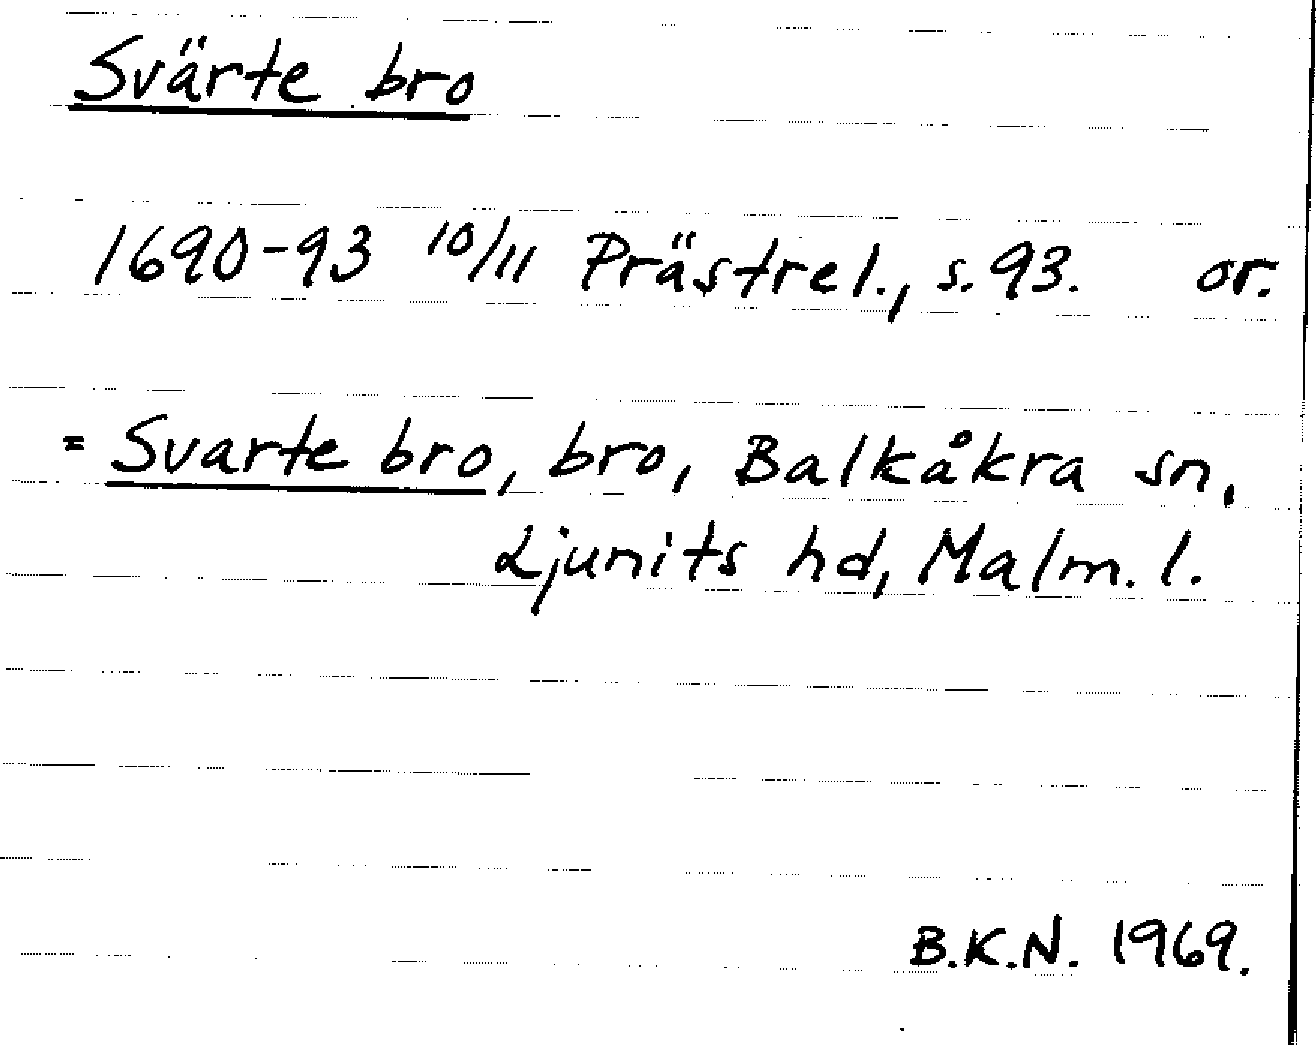 Svärte bro
1690-93 10/11 Prästrel., s. 93. or.
= Svarte bro, bro, Balkåkra sn,
Ljunits hd, Malm. l.
B.K.N. 1969.